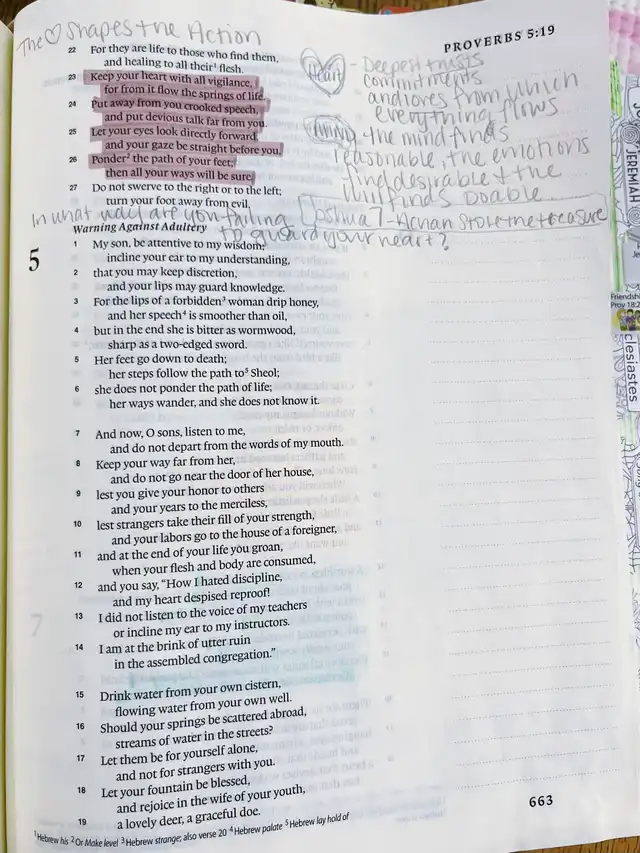 The ♡ Shapes the Action
PROVERBS 5:19
22 For they are life to those who find them,
and healing to all their¹ flesh.
23 Keep your heart with all vigilance,
for from it flow the springs of life.
24 Put away from you crooked speech,
and put devious talk far from you.
25 Let your eyes look directly forward,
and your gaze be straight before you.
26 Ponder² the path of your feet;
then all your ways will be sure.
27 Do not swerve to the right or to the left;
turn your foot away from evil.
Heart - Deepest trusts
commitments
and loves from which
everything flows
- the mind finds
reasonable, the emotions
find desirable & the
will finds doable
Joshua 7 - Achan stole the treasure
In what way are you failing
to guard your heart?
Warning Against Adultery
5
1 My son, be attentive to my wisdom;
incline your ear to my understanding,
2 that you may keep discretion,
and your lips may guard knowledge.
3 For the lips of a forbidden³ woman drip honey,
and her speech⁴ is smoother than oil,
4 but in the end she is bitter as wormwood,
sharp as a two-edged sword.
5 Her feet go down to death;
her steps follow the path to⁵ Sheol;
6 she does not ponder the path of life;
her ways wander, and she does not know it.
7 And now, O sons, listen to me,
and do not depart from the words of my mouth.
8 Keep your way far from her,
and do not go near the door of her house,
9 lest you give your honor to others
and your years to the merciless,
10 lest strangers take their fill of your strength,
and your labors go to the house of a foreigner,
11 and at the end of your life you groan,
when your flesh and body are consumed,
12 and you say, “How I hated discipline,
and my heart despised reproof!
13 I did not listen to the voice of my teachers
or incline my ear to my instructors.
14 I am at the brink of utter ruin
in the assembled congregation.”
15 Drink water from your own cistern,
flowing water from your own well.
16 Should your springs be scattered abroad,
streams of water in the streets?
17 Let them be for yourself alone,
and not for strangers with you.
18 Let your fountain be blessed,
and rejoice in the wife of your youth,
19 a lovely deer, a graceful doe.
¹ Hebrew his ² Or Make level ³ Hebrew strange; also verse 20 ⁴ Hebrew palate ⁵ Hebrew lay hold of
663
JEREMIAH
Friendship
Prov 18:2
clesiastes